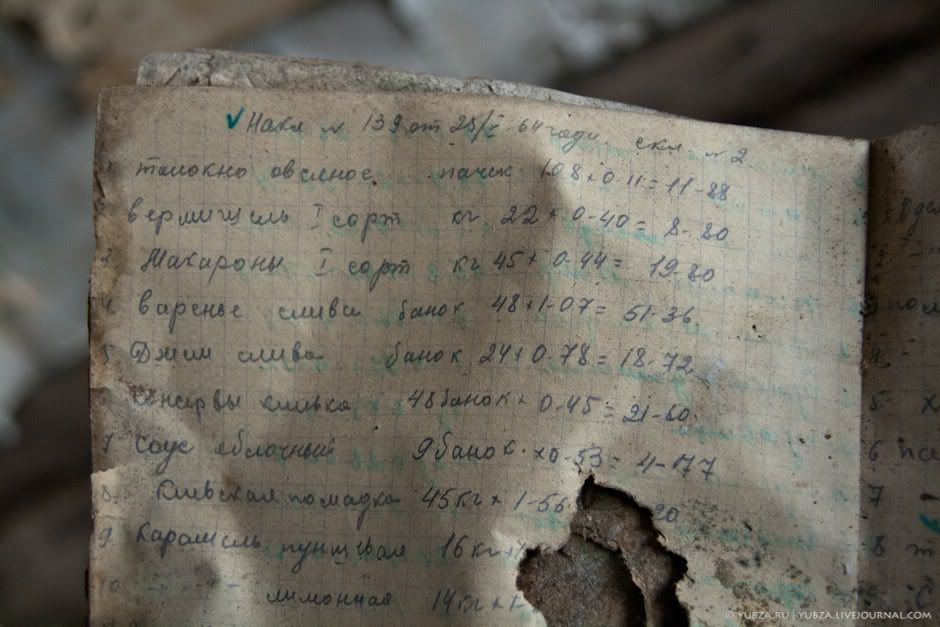 ✓ Накл № 139 от 25/I-64 года скл № 2
толокно овсяное пачек 108×0-11=11-88
вермишель I сорт кг 22×0-40=8-80
3 Макароны I сорт кг 45×0-44=19-80
4 варенье слива банок 48×1-07=51-36
5 Джем слива банок 24×0-78=18-72
консервы килька 48 банок×0-45=21-60
7 Соус яблочный 9 банок×0-53=4-77
8 Киевская помадка 45 кг×1-56 20
9 Карамель пуншевая 16 кг×
-"- лимонная 14 кг×1-
5
6
7
8
© YUBZA.RU | YUBZA.LIVEJOURNAL.COM